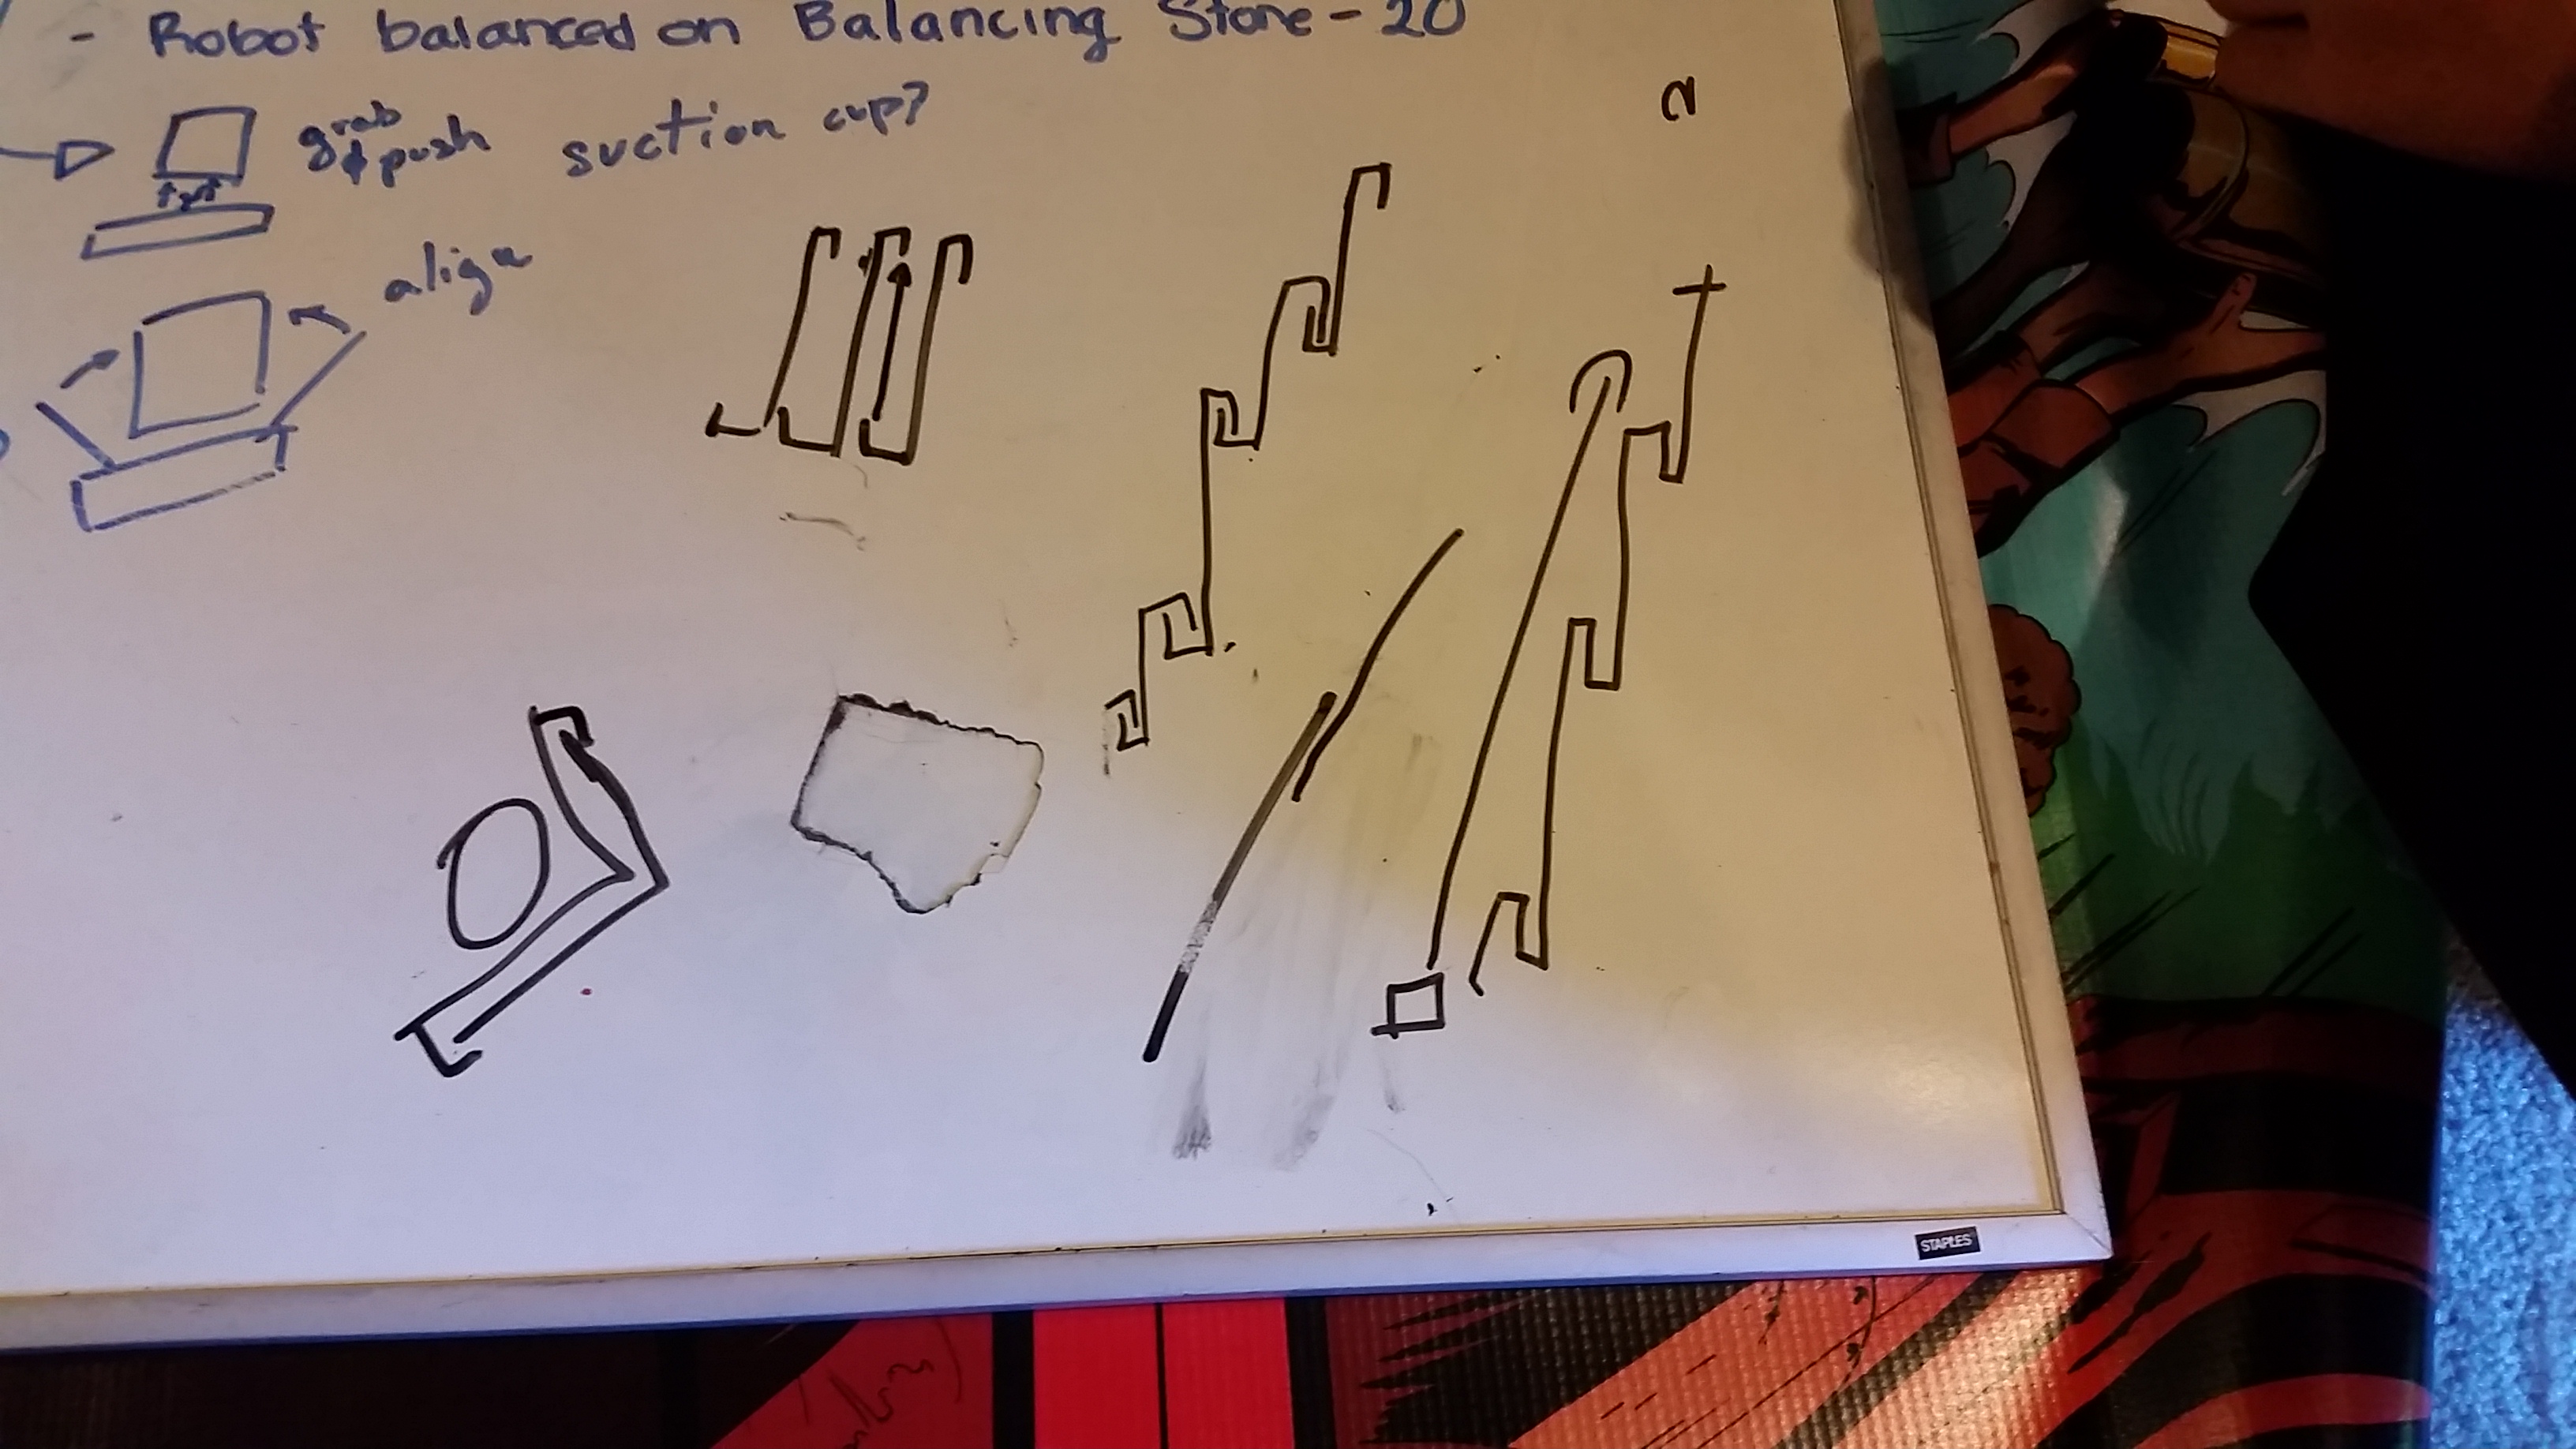 - Robot balanced on Balancing Stone - 20
grab & push suction cup?
align
2
STAPLES